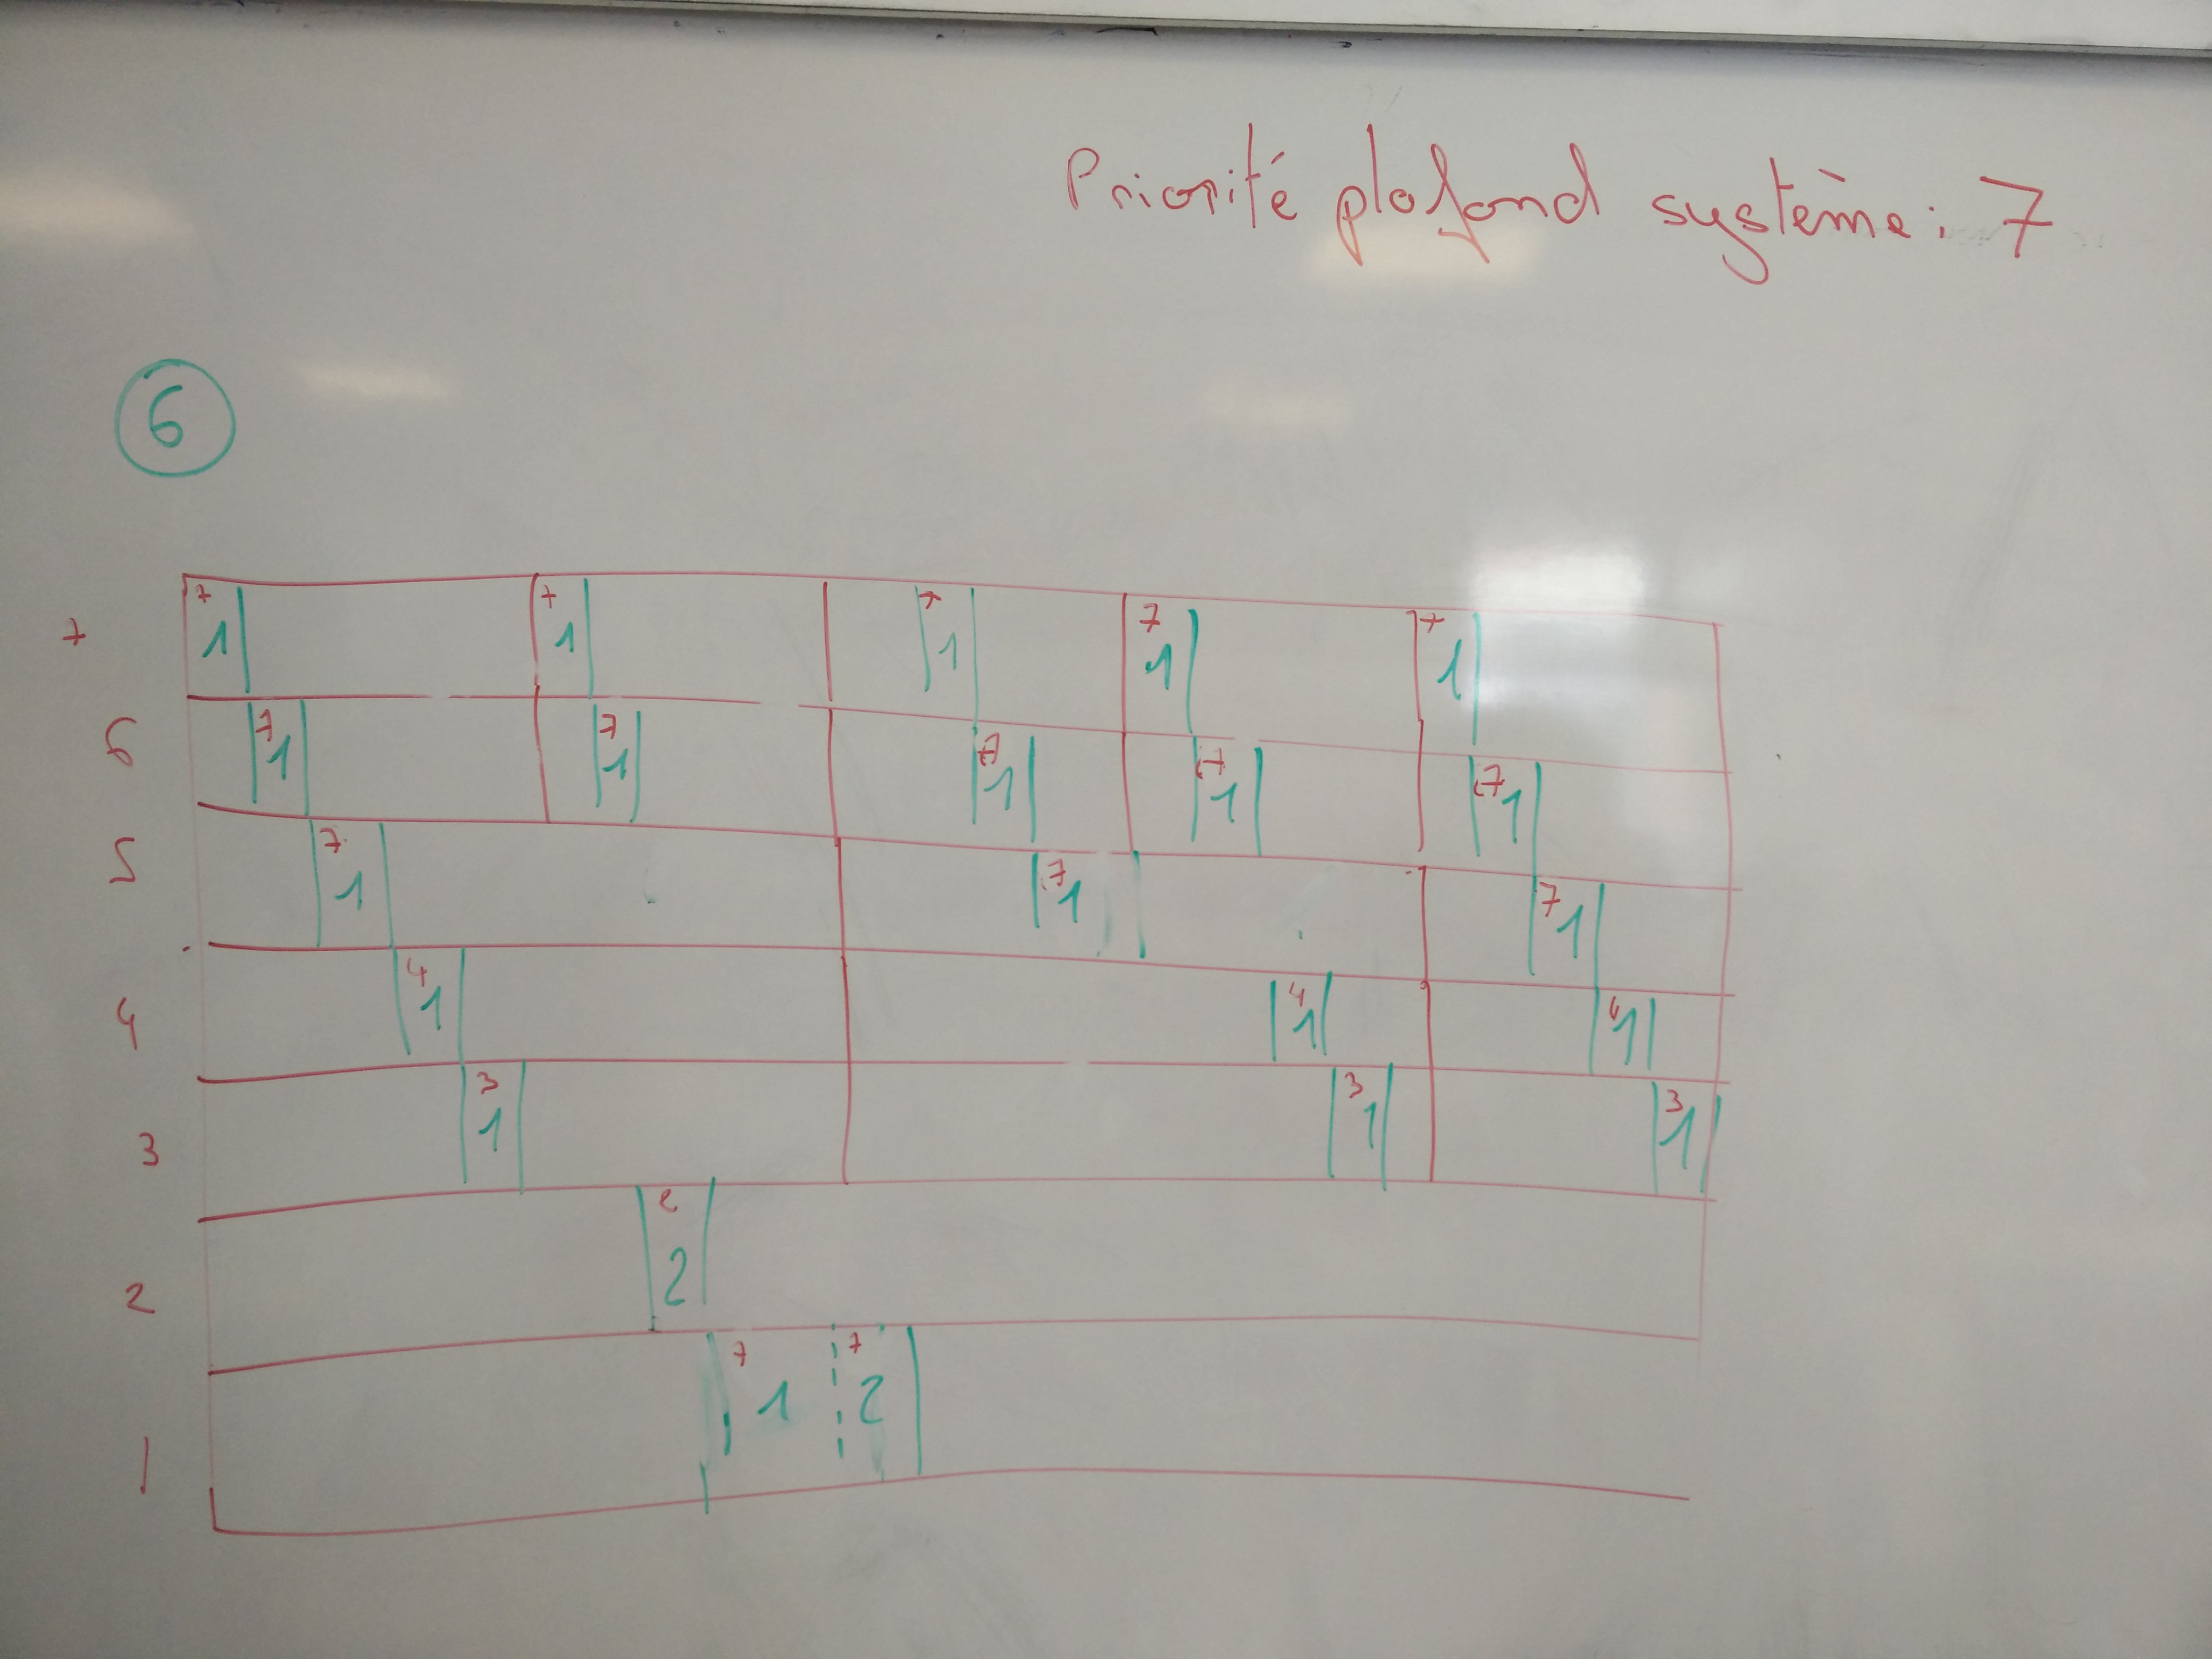 Priorité plafond système : 7
6
7 7 1 7 1 7 1 7 1 7 1
6 7 1 7 1 7 1 7 1 7 1
5 7 1 7 1 7 1
4 4 1 4 1 4 1
3 3 1 3 1 3 1
2 2 2
1 7 1 7 2